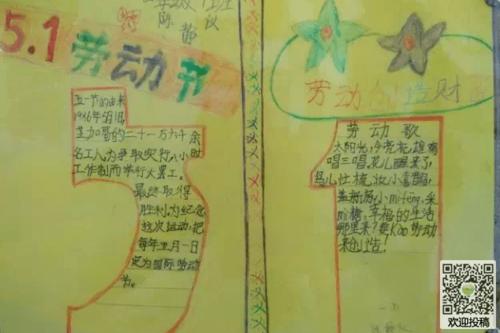 5.1劳动节
五一节的由来
芝加哥的二十一万六千余
名工人为争取实行八小时
工作制而举行大罢工。
最终取得
胜利为纪念
这次运动,把
每年五月一日
定为国际劳动
节。
劳动创造财
劳动歌
太阳光,金亮亮,雄鸡
唱三唱。花儿醒来了,
鸟儿忙梳妆小喜鹊,
盖新房,小mifeng,采
mi糖,幸福的生活
哪里来?要Kao劳动
来创造!
欢迎投稿